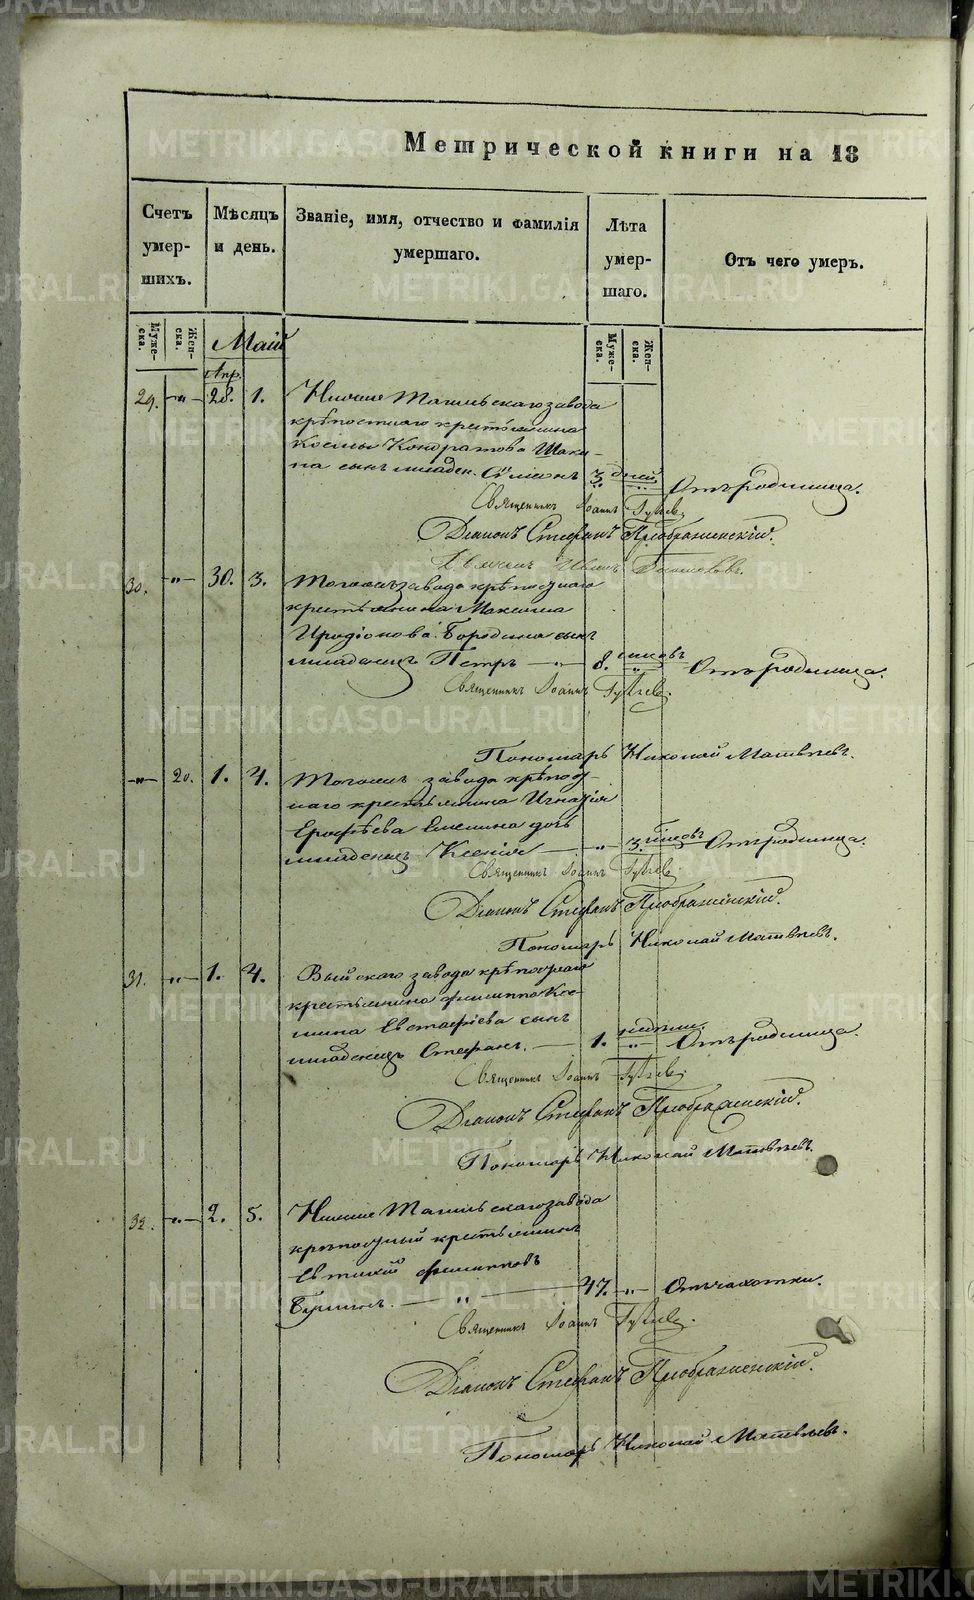 Метрической книги на 18
Счетъ умершихъ.
Мѣсяцъ и день.
Званіе, имя, отчество и фамилія умершаго.
Лѣта умершаго.
Отъ чего умеръ.
Мужеска.
Женска.
Май
Апр.
Мужеска.
Женска.
29. -„- 28. 1. Нижне Тагильскаго завода
крѣпостнаго крестьянина
Космы Кондратова
на сынъ младен. Симеонъ 3. дней „ Отъ родимца.
Священникъ Іоаннъ
Діаконъ Стефанъ Преображенскій.
Иванъ
30. -„- 30. 3. Тогожъ завода крѣпостнаго
крестьянина Максима
Иродіонова Бородина сынъ
младенецъ Петръ — „ — 8. „ Отъ родимца.
Священникъ Іоаннъ
Пономарь Николай Матвѣевъ.
-„- 20. 1. 4. Тогожъ завода крѣпост-
наго крестьянина Игнатія
Ерофѣева дочь
младенецъ Ксенія — „ — 3. Отъ родимца.
Священникъ Іоаннъ
Діаконъ Стефанъ Преображенскій.
Пономарь Николай Матвѣевъ.
31. -„- 1. 4. Выйскаго завода крѣпостнаго
крестьянина Филиппа Кос-
мина Евстафіева сынъ
младенецъ Стефанъ. — 1. недѣли. „ Отъ родимца.
Священникъ Іоаннъ
Діаконъ Стефанъ Преображенскій.
Пономарь Николай Матвѣевъ.
32. -„- 2. 5. Нижне Тагильскаго завода
крѣпостный крестьянинъ
Евтихій Филиповъ
— „ — 47. -„- Отъ чахотки.
Священникъ Іоаннъ
Діаконъ Стефанъ Преображенскій.
Пономарь Николай Матвѣевъ.
METRIKI.GASO-URAL.RU